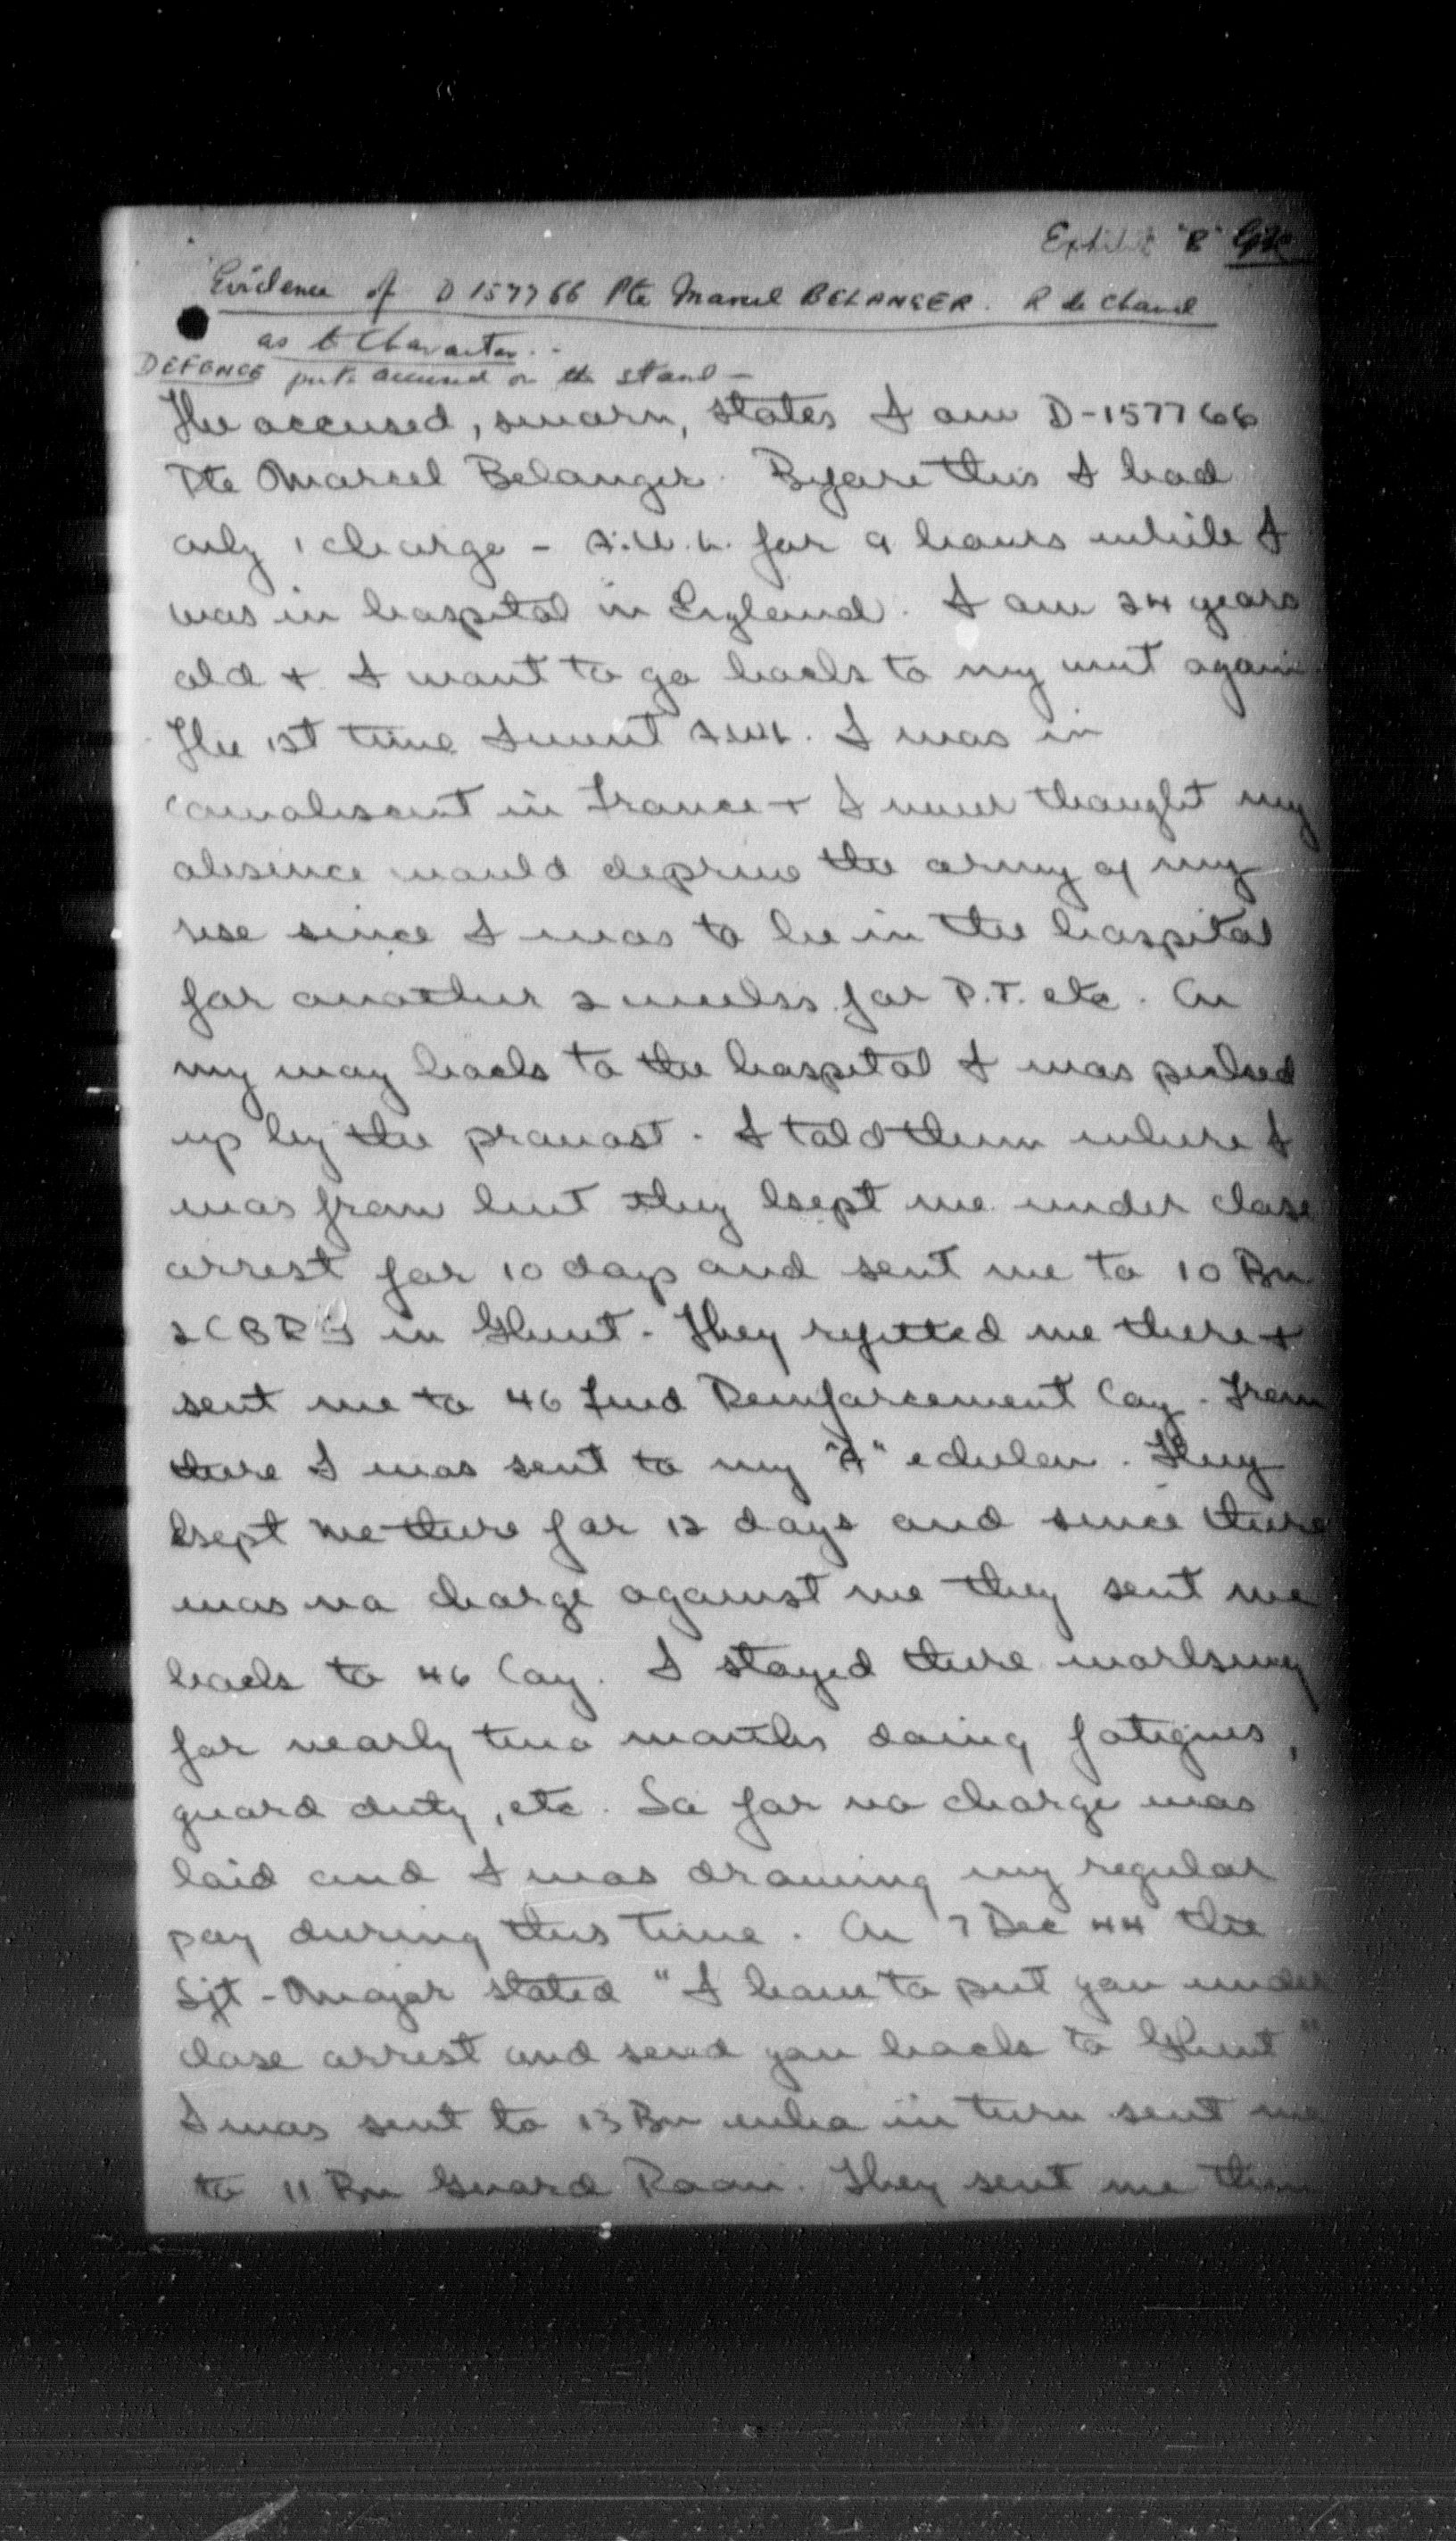 Exhibit "B"
Evidence of D 157766 Pte Marcel BELANGER. R de Chaud
as to Character.
DEFENCE puts accused on the stand —
The accused, sworn, states I am D-157766
Pte Marcel Belanger. Before this I had
only 1 charge - A.W.L. for 9 hours while I
was in hospital in England. I am 24 years
old + I want to go back to my unit again
The 1st time I went AWL. I was in
convalescent in France + I never thought my
absence would deprive the army of my
use since I was to be in the hospital
for another 2 weeks for P.T. etc. On
my way back to the hospital I was picked
up by the provost. I told them where I
was from but they kept me under close
arrest for 10 days and sent me to 10 Bn
2 CBRG in Ghent. They refitted me there +
sent me to 46 Fwd Reinforcement Coy. From
there I was sent to my "A" echelon. They
kept me there for 12 days and since there
was no charge against me they sent me
back to 46 Coy. I stayed there working
for nearly two months doing fatigues,
guard duty, etc. So far no charge was
laid and I was drawing my regular
pay during this time. On 7 Dec 44 the
Sjt-Major stated "I have to put you under
close arrest and send you back to Ghent"
I was sent to 13 Bn who in turn sent me
to 11 Bn Guard Room. They sent me then